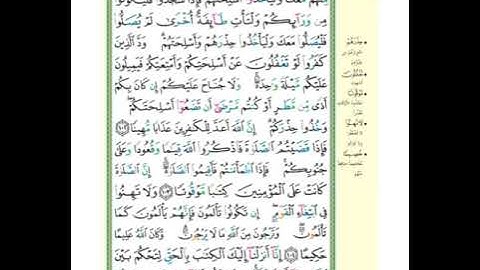 مِّنْهُم مَّعَكَ وَلْيَأْخُذُوٓا۟ أَسْلِحَتَهُمْ فَإِذَا سَجَدُوا۟ فَلْيَكُونُوا۟
مِن وَرَآئِكُمْ وَلْتَأْتِ طَآئِفَةٌ أُخْرَىٰ لَمْ يُصَلُّوا۟
فَلْيُصَلُّوا۟ مَعَكَ وَلْيَأْخُذُوا۟ حِذْرَهُمْ وَأَسْلِحَتَهُمْ ۗ وَدَّ ٱلَّذِينَ
كَفَرُوا۟ لَوْ تَغْفُلُونَ عَنْ أَسْلِحَتِكُمْ وَأَمْتِعَتِكُمْ فَيَمِيلُونَ
عَلَيْكُم مَّيْلَةً وَٰحِدَةً ۚ وَلَا جُنَاحَ عَلَيْكُمْ إِن كَانَ بِكُمْ
أَذًى مِّن مَّطَرٍ أَوْ كُنتُم مَّرْضَىٰٓ أَن تَضَعُوٓا۟ أَسْلِحَتَكُمْ ۖ
وَخُذُوا۟ حِذْرَكُمْ ۗ إِنَّ ٱللَّهَ أَعَدَّ لِلْكَٰفِرِينَ عَذَابًا مُّهِينًا ١٠٢
فَإِذَا قَضَيْتُمُ ٱلصَّلَوٰةَ فَٱذْكُرُوا۟ ٱللَّهَ قِيَٰمًا وَقُعُودًا وَعَلَىٰ
جُنُوبِكُمْ ۚ فَإِذَا ٱطْمَأْنَنتُمْ فَأَقِيمُوا۟ ٱلصَّلَوٰةَ ۚ إِنَّ ٱلصَّلَوٰةَ
كَانَتْ عَلَى ٱلْمُؤْمِنِينَ كِتَٰبًا مَّوْقُوتًا ١٠٣ وَلَا تَهِنُوا۟
فِى ٱبْتِغَآءِ ٱلْقَوْمِ ۖ إِن تَكُونُوا۟ تَأْلَمُونَ فَإِنَّهُمْ يَأْلَمُونَ كَمَا
تَأْلَمُونَ ۖ وَتَرْجُونَ مِنَ ٱللَّهِ مَا لَا يَرْجُونَ ۗ وَكَانَ ٱللَّهُ عَلِيمًا
حَكِيمًا ١٠٤ إِنَّآ أَنزَلْنَآ إِلَيْكَ ٱلْكِتَٰبَ بِٱلْحَقِّ لِتَحْكُمَ بَيْنَ
حِذْرَهُم
تَغْفُلُونَ
مَوْقُوتًا
لَا تَهِنُوا
خَصِيمًا